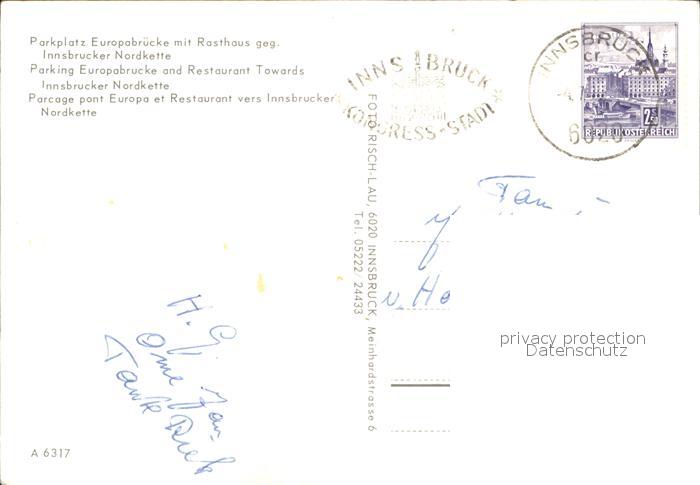 Parkplatz Europabrücke mit Rasthaus geg.
Innsbrucker Nordkette
Parking Europabrucke and Restaurant Towards
Innsbrucker Nordkette
Parcage pont Europa et Restaurant vers Innsbrucker
Nordkette
INNSBRUCK
KONGRESS-STADT
INNSBRUCK
6020
REPUBLIK ÖSTERREICH
FOTO RISCH-LAU, 6020 INNSBRUCK, Meinhardstrasse 6
Tel. 05222/24433
Fam
privacy protection
Datenschutz
H. G
Oma
Tante
A 6317